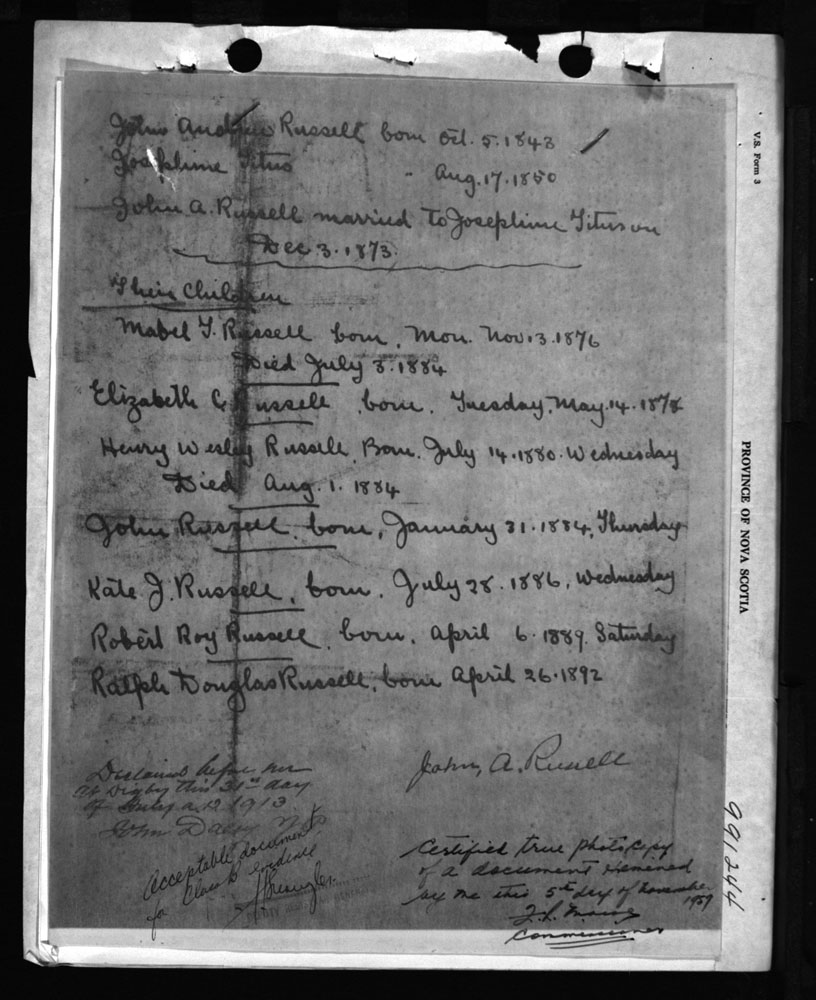 John Andrew Russell born Oct. 5. 1843
Josephine Titus " Aug. 17. 1850
John A. Russell married to Josephine Titus on
Dec 3. 1873.
Their Children
Mabel T. Russell born, Mon. Nov 13. 1876
Died July 3. 1884
Elizabeth C Russell born. Tuesday, May. 14. 1878
Henry Wesley Russell, Born. July 14. 1880. Wednesday
Died Aug. 1. 1884
John Russell, born, January 31. 1884, Thursday
Kate J. Russell, born, July 28. 1886, Wednesday
Robert Roy Russell, born, April 6. 1889. Saturday
Ralph Douglas Russell, born April 26. 1892
John, A. Russell
Declared before me
at Digby this 31st day
of July A.D. 1913.
John Daley
Acceptable document
for Class B evidence
Certified true photocopy
of a document
by me this 5th day of November
1959
Commissioner
V.S. Form 3
PROVINCE OF NOVA SCOTIA
991244